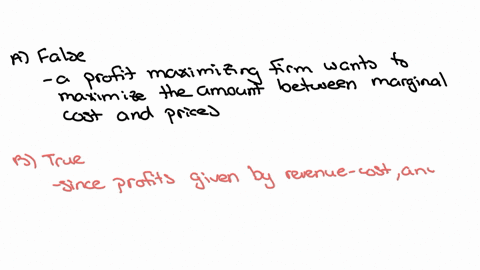 A) False
- a profit maximizing firm wants to
maximize the amount between marginal
cost and prices
B) True
-since profits given by revenue-cost, and